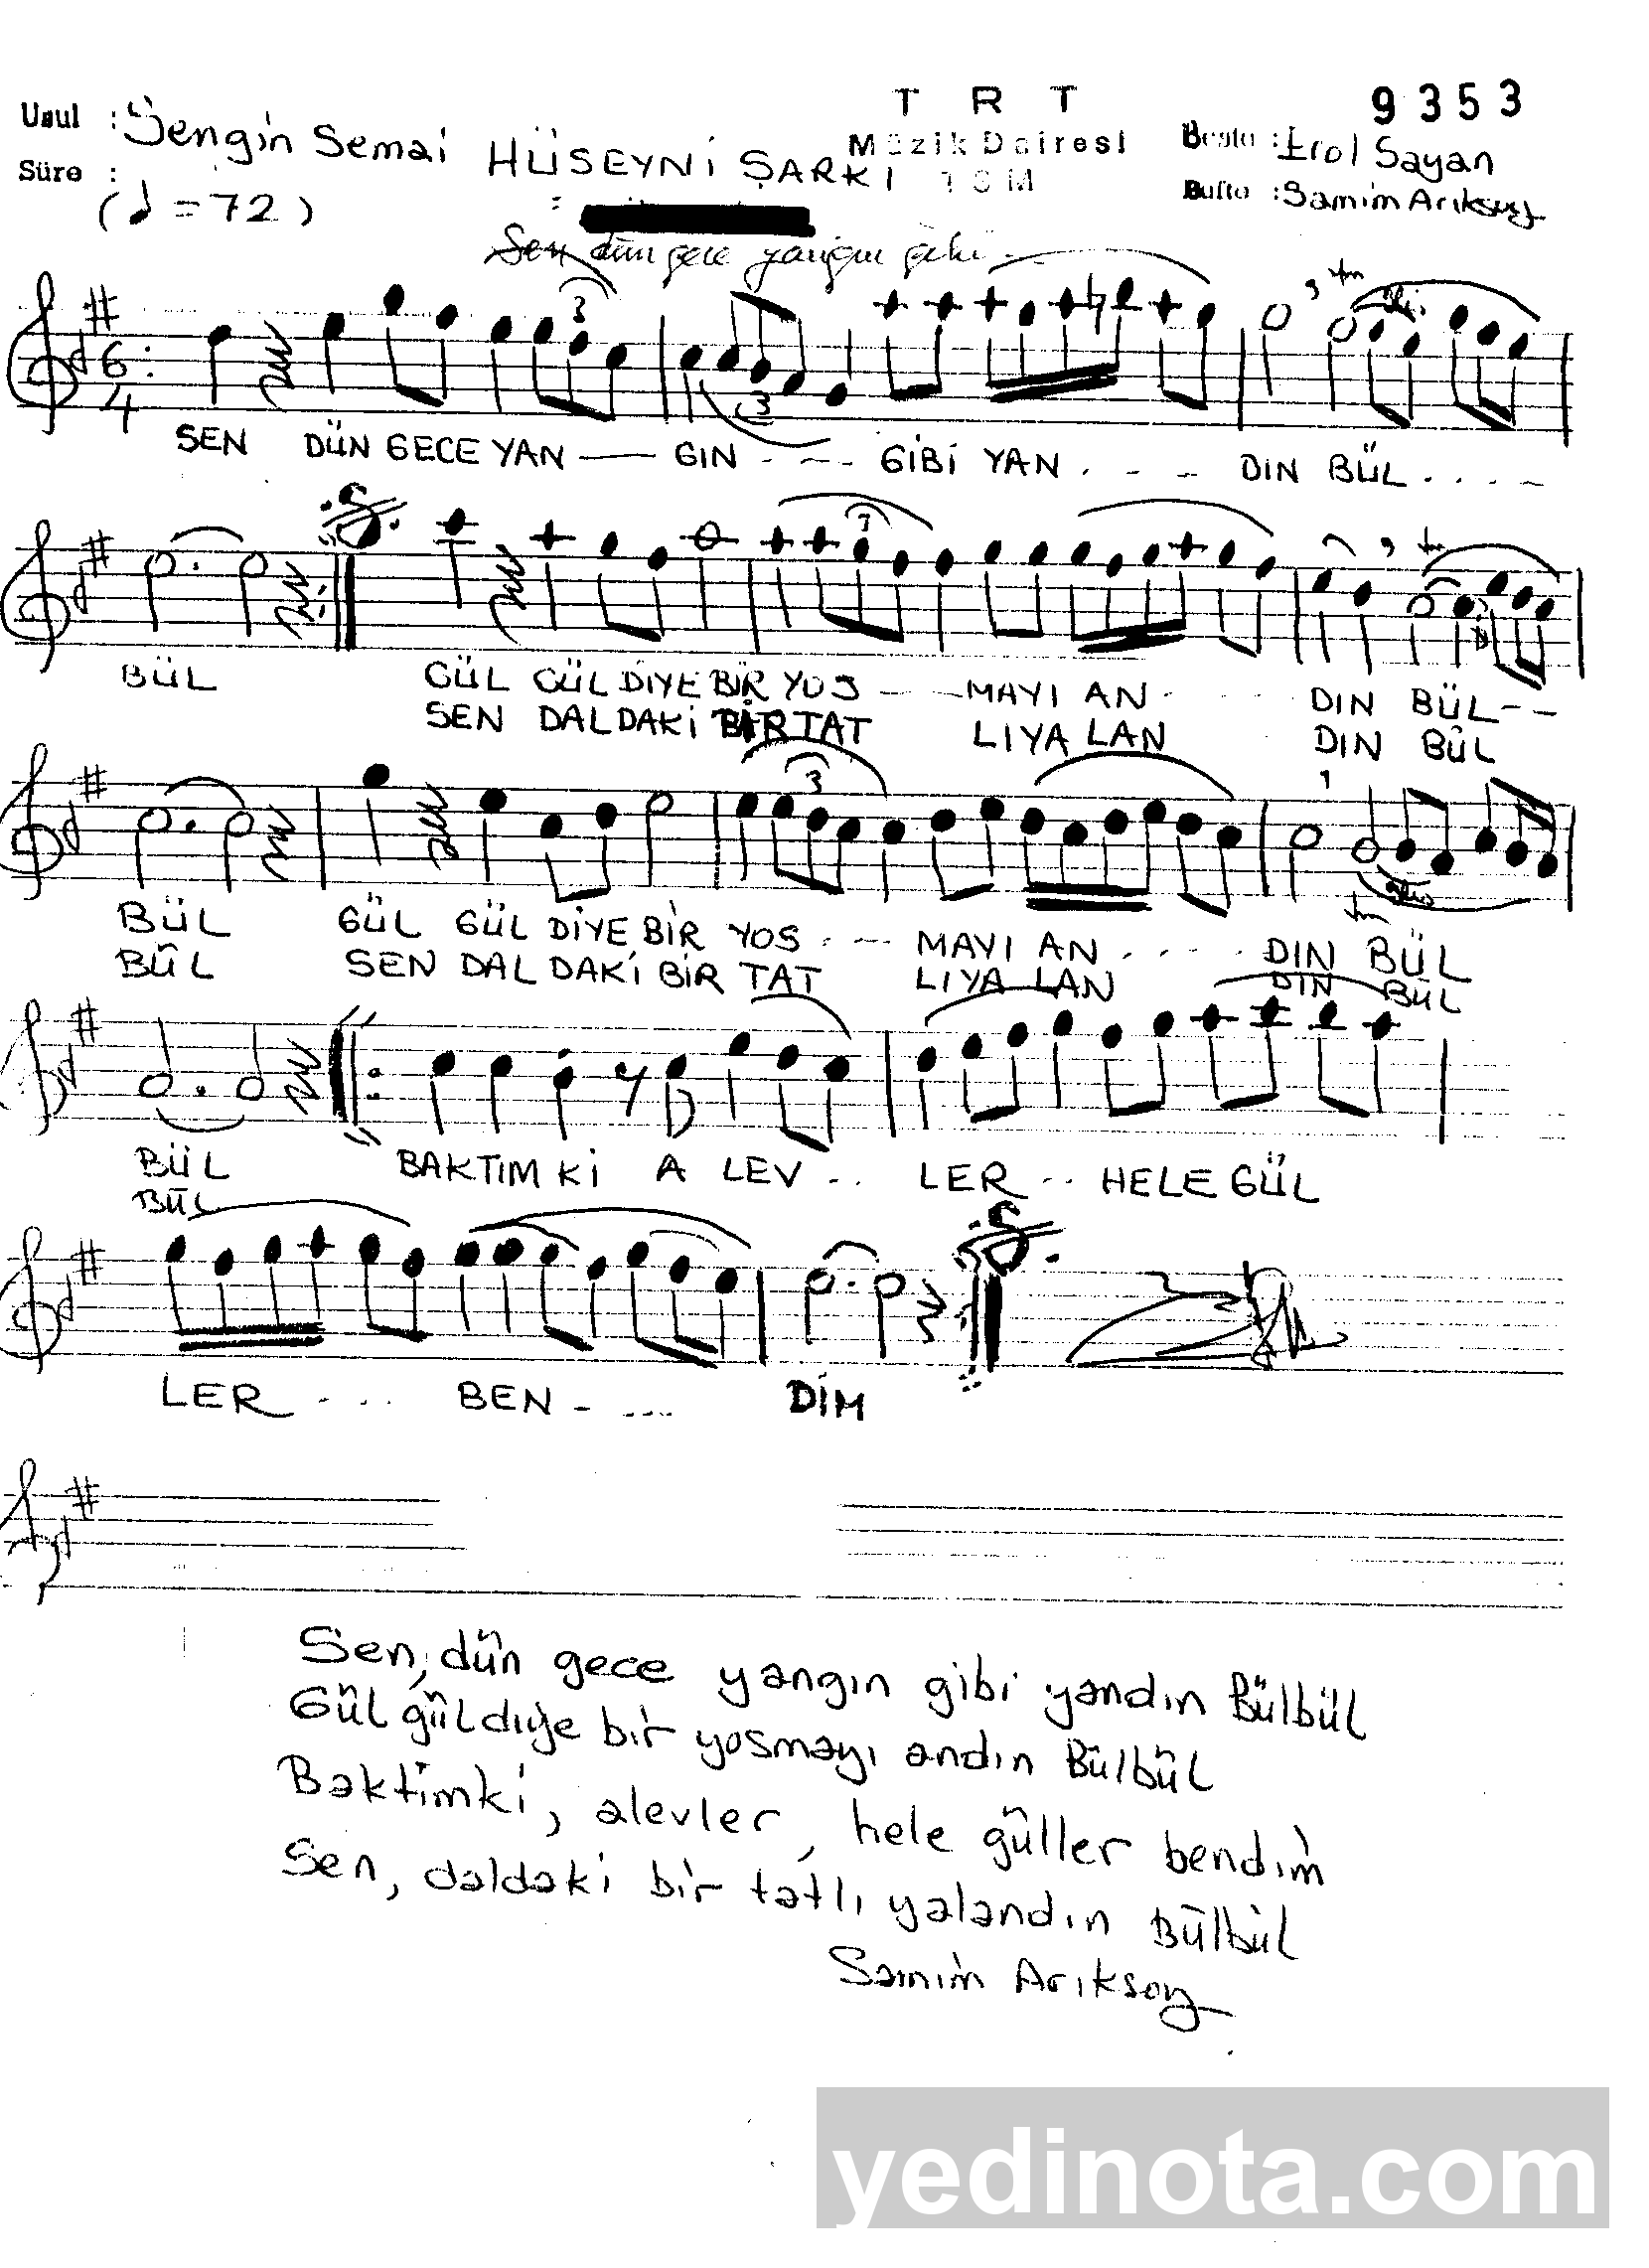 9353
T R T
Usul : Yengin Semai
Müzik Dairesi
Beste : Erol Sayan
Süre :
HÜSEYNİ ŞARKI
TSM
Güfte : Samim Arıksoy
(♩ = 72)
Sen dün gece yangın gibi ...
6/4
SEN DÜN GECE YAN —— GIN - - - - GİBİ YAN . - - - DIN BÜL . . . . -
BÜL GÜL GÜL DİYE BİR YOS - - - MAYI AN - - - - DIN BÜL - -
SEN DALDAKİ BİR TAT LI YA LAN DIN BÜL
BÜL GÜL GÜL DİYE BİR YOS - - - MAYI AN . - - - - DIN BÜL
BÜL SEN DAL DAKİ BİR TAT LI YA LAN DIN BÜL
BÜL BAKTIM Kİ A LEV - - LER - - HELE GÜL
BÜL
LER - - - - BEN - - - - DİM
Sen, dün gece yangın gibi yandın Bülbül
Gül gül diye bir yosmayı andın Bülbül
Baktimki, alevler, hele güller bendim
Sen, daldaki bir tatlı yalandın Bülbül
Samim Arıksoy
yedinota.com